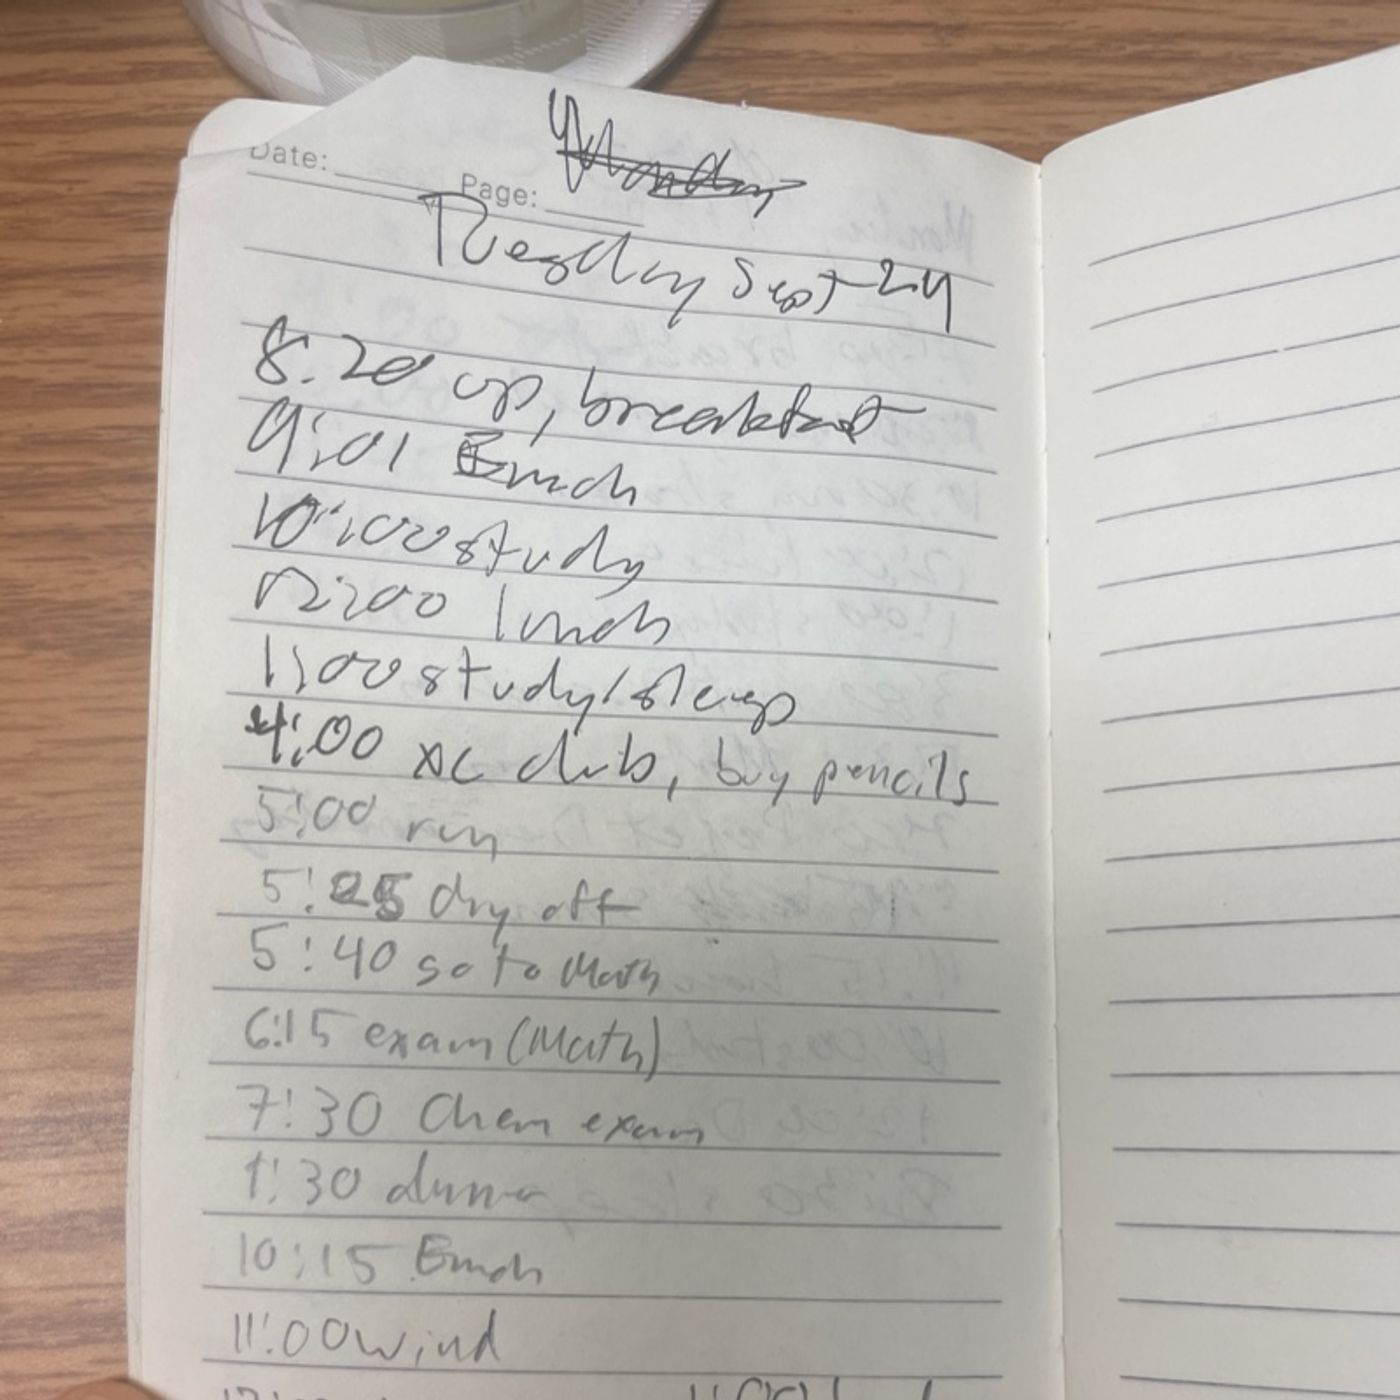 Monday
Date: Page:
Tuesday Sept 24
8:20 up, breakfast
9:01 Emch
10:00 study
12:00 lunch
1:00 study/sleep
4:00 XC club, buy pencils
5:00 run
5:25 dry off
5:40 go to Math
6:15 exam (Math)
7:30 Chem exam
9:30 dinner
10:15 Emch
11:00 wind